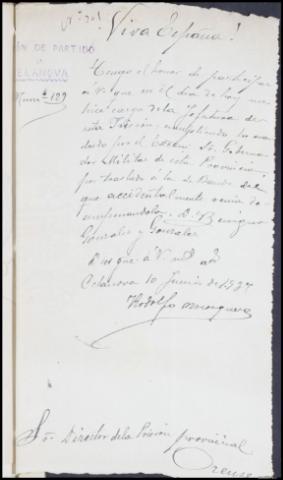 ¡Viva España!
ÓN DE PARTIDO
ELANOVA
Núm. 189
Tengo el honor de participar
a V. que en el día de hoy me
hice cargo de la Jefatura de
esta Prisión, cumpliendo lo man-
dado por el Excmo. Sr. Goberna-
dor Militar de esta Provincia,
por traslado á la de Bande del
que accidentalmente venía de-
sempeñandola, D. Benigno
Gonzalez y Gonzalez
Dios que á V. m. ad
Celanova 10 Junio de 1937
Rodolfo
Sr. Director de la Prisión provincial
Orense